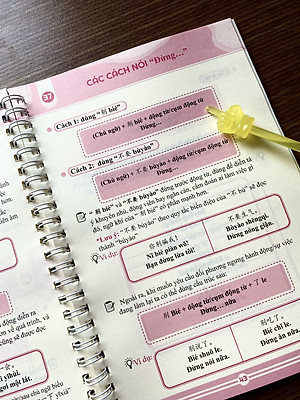 37
CÁC CÁCH NÓI “Đừng...”
Cách 1: dùng “别 bié”
(Chủ ngữ) + 别 bié + động từ/cụm động từ
Đừng...
Cách 2: dùng “不要 bùyào”
(Chủ ngữ) + 不要 bùyào + động từ/cụm động từ
Đừng...
“别 bié” và “不要 bùyào” đứng trước động từ, dùng để diễn tả
ý khuyên nhủ, động viên hay ngăn cản, cấm đoán ai làm việc gì
đó, ngữ khí của “别 bié” có phần mạnh hơn.
*Lưu ý: “不要 bùyào” theo quy tắc biến điệu của “不 bù” sẽ đọc
thành “búyào”
Ví dụ:
你别骗我!
Nǐ bié piàn wǒ!
Bạn đừng lừa tôi!
不要生气。
Bùyào shēngqì.
Đừng nóng giận.
Ngoài ra, khi muốn yêu cầu đối phương ngưng hành động/sự việc
đang làm lại ta có thể dùng cấu trúc sau:
别 Bié + động từ/cụm động từ + 了 le
Đừng... nữa
Ví dụ:
别说了。
Bié shuō le.
Đừng nói nữa.
别吃了。
Bié chī le.
Đừng ăn nữa.
43